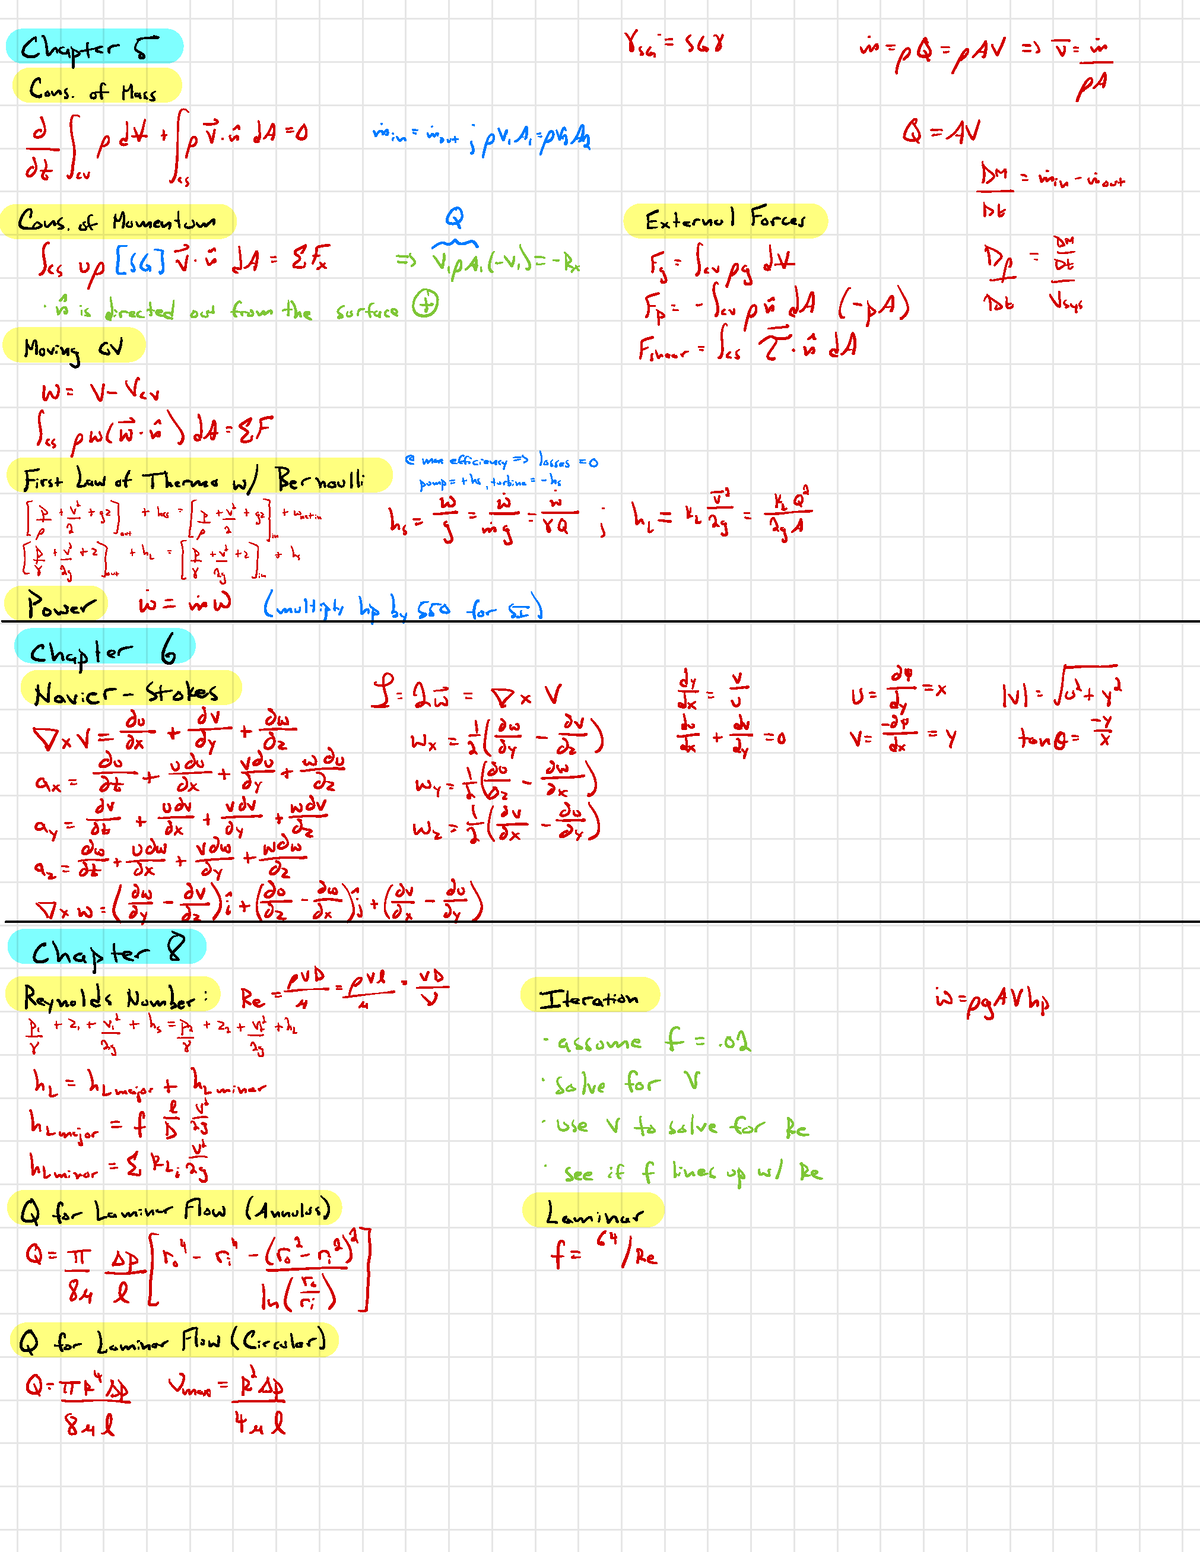 Chapter 5
γ_SG = SGγ
ṁ = ρQ = ρAV => V̄ = ṁ/ρA
Cons. of Mass
∂/∂t ∫_cv ρ dV̶ + ∫_cs ρ V⃗·n̂ dA = 0
ṁ_in = ṁ_out ; ρV₁A₁ = ρV₂A₂
Q = AV
DM/Dt = ṁ_in - ṁ_out
Cons. of Momentum
∫_cs uρ [SG] V⃗·n̂ dA = ΣF_x
Q
=> V₁ρA₁(-V₁) = -R_x
· n̂ is directed out from the surface (+)
External Forces
F_g = ∫_cv ρg dV̶
F_p = -∫_cv p n̂ dA (-pA)
F_shear = ∫_cs τ⃗·n̂ dA
Dρ/Dt = (DM/Dt)/V_sys
Moving CV
W = V - V_cv
∫_cs ρw(w⃗·n̂)dA = ΣF
First Law of Thermo w/ Bernoulli
@ max efficiency => losses = 0
pump = +h_s, turbine = -h_s
[p/ρ + V²/2 + gz]_out + h_LS = [p/ρ + V²/2 + gz]_in + w_net in
[p/γ + V²/2g + z]_out + h_L = [p/γ + V²/2g + z]_in + h_s
h_s = w/g = ẇ/ṁg = ẇ/γQ ; h_L = K_L V̄²/2g = K_L Q²/2gA
Power ẇ = ṁw (multiply hp by 550 for SI)
Chapter 6
Navier-Stokes
∇×V = ∂u/∂x + ∂v/∂y + ∂w/∂z
a_x = ∂u/∂t + u∂u/∂x + v∂u/∂y + w∂u/∂z
a_y = ∂v/∂t + u∂v/∂x + v∂v/∂y + w∂v/∂z
a_z = ∂w/∂t + u∂w/∂x + v∂w/∂y + w∂w/∂z
∇×w = (∂w/∂y - ∂v/∂z)î + (∂u/∂z - ∂w/∂x)ĵ + (∂v/∂x - ∂u/∂y)
ζ = 2w⃗ = ∇×V
w_x = 1/2(∂w/∂y - ∂v/∂z)
w_y = 1/2(∂u/∂z - ∂w/∂x)
w_z = 1/2(∂v/∂x - ∂u/∂y)
dy/dx = v/u
du/dx + dv/dy = 0
u = ∂ψ/∂y = x
v = -∂ψ/∂x = y
|v| = √(u² + v²)
tanθ = -y/x
Chapter 8
Reynolds Number: Re = ρVD/μ = ρVl/μ = VD/ν
p₁/γ + z₁ + V₁²/2g + h_s = p₂/γ + z₂ + V₂²/2g + h_L
h_L = h_L major + h_L minor
h_L major = f l/D V²/2g
h_L minor = Σ K_Li V²/2g
Iteration
· assume f = .02
· solve for V
· use V to solve for Re
· see if f lines up w/ Re
ẇ = ρgAVhp
Q for Laminar Flow (Annulus)
Q = π/8μ Δp/l [r_o⁴ - r_i⁴ - (r_o² - r_i²)²/ln(r_o/r_i)]
Laminar
f = 64/Re
Q for Laminar Flow (Circular)
Q = πR⁴Δp/8μl
V_max = R²Δp/4μl